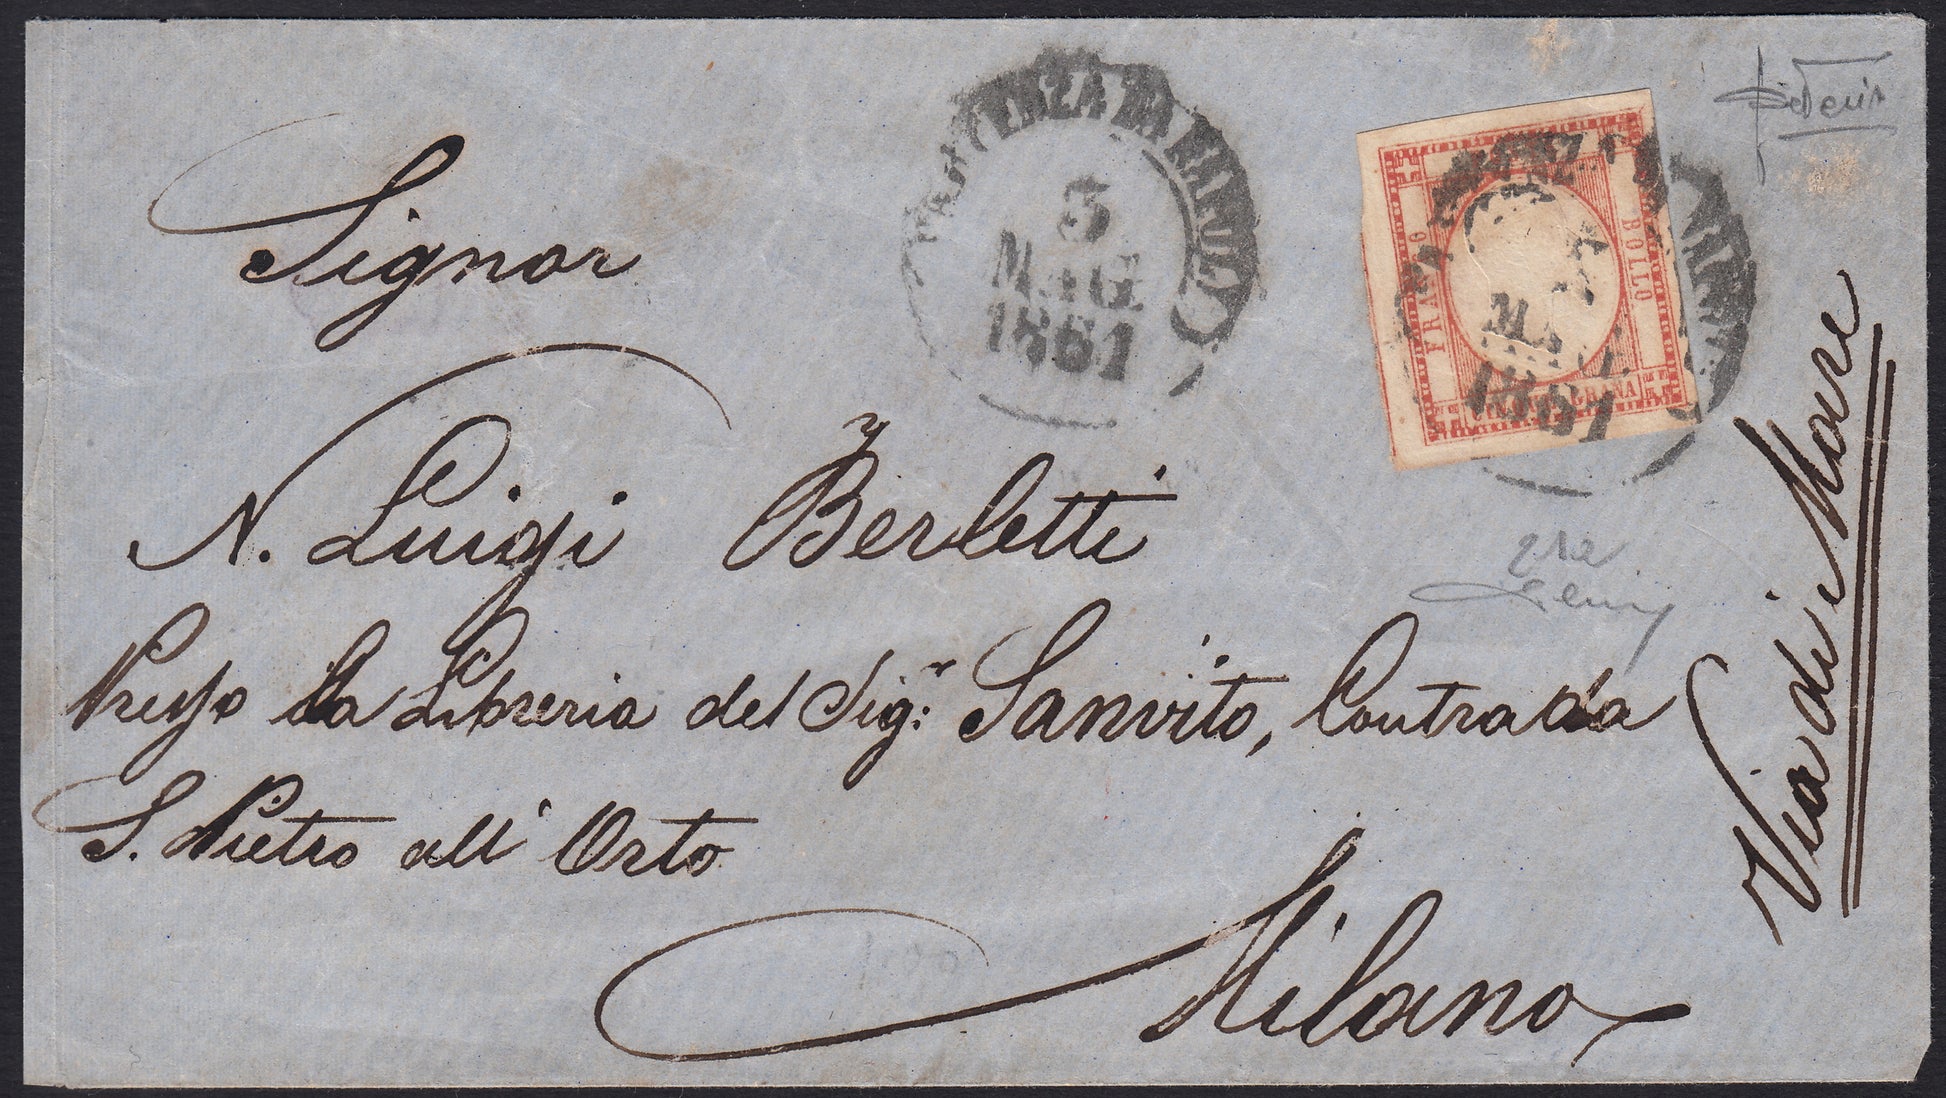 PARTENZA DA NAPOLI
3
MAG
1861
FRANCO
BOLLO
UN GRANA
1861
Signor
N. Luigi Berletti
Presso la Libreria del Sigr. Sanvito, Contrada
S. Pietro all' Orto
Milano
Via di Mare